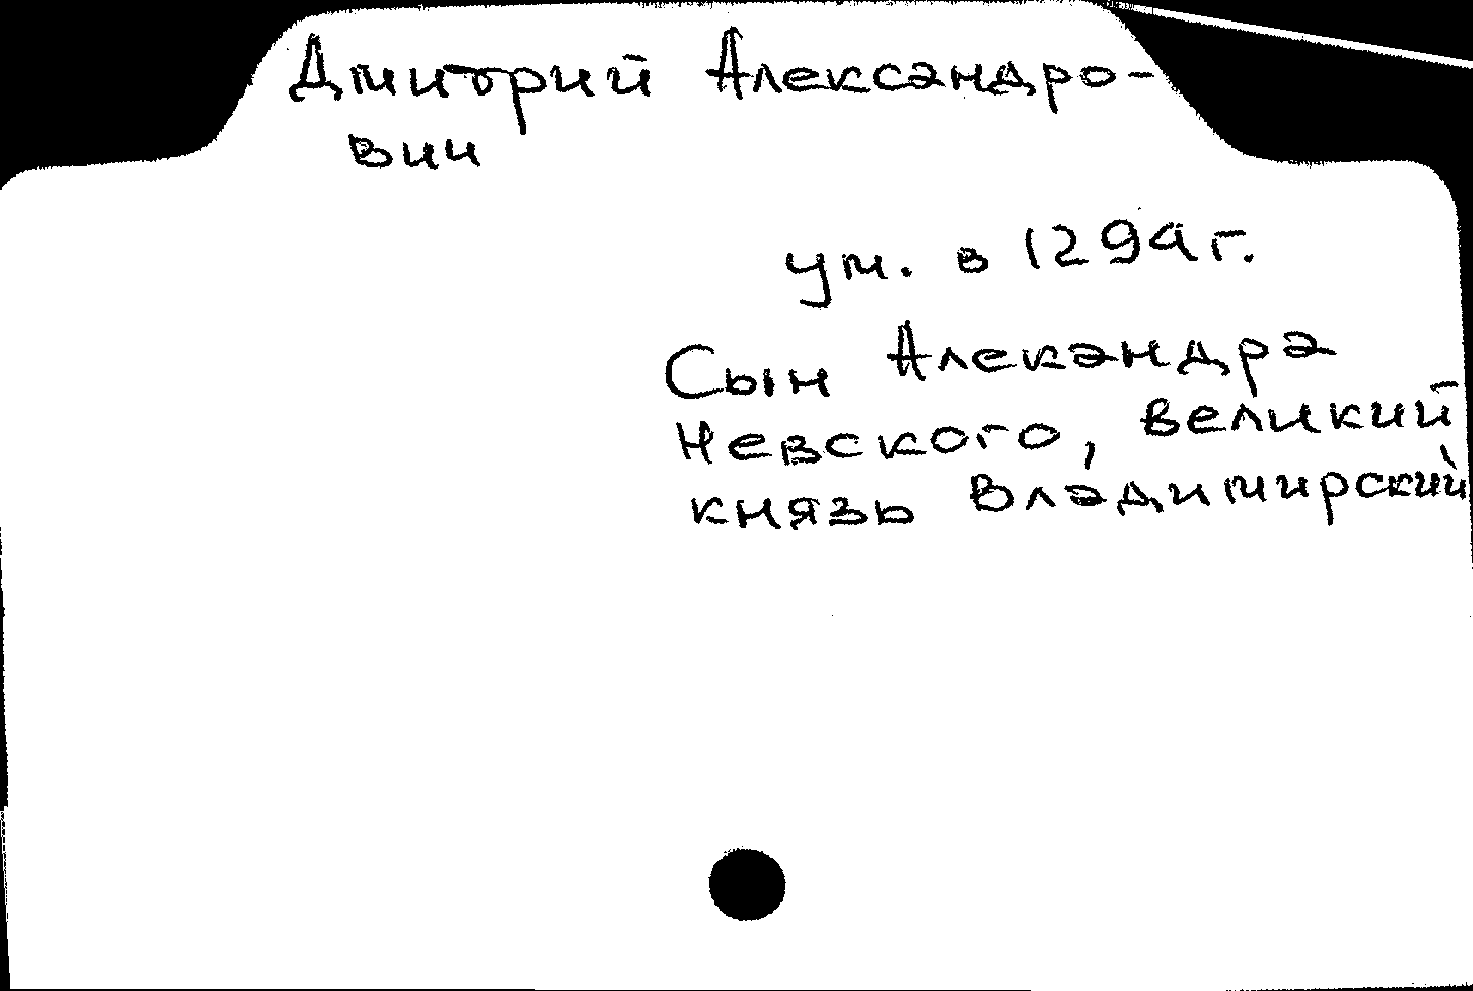 Дмитрий Александро-
вич
ум. в 1294г.
Сын Алекандра
Невского, великий
князь Владимирский